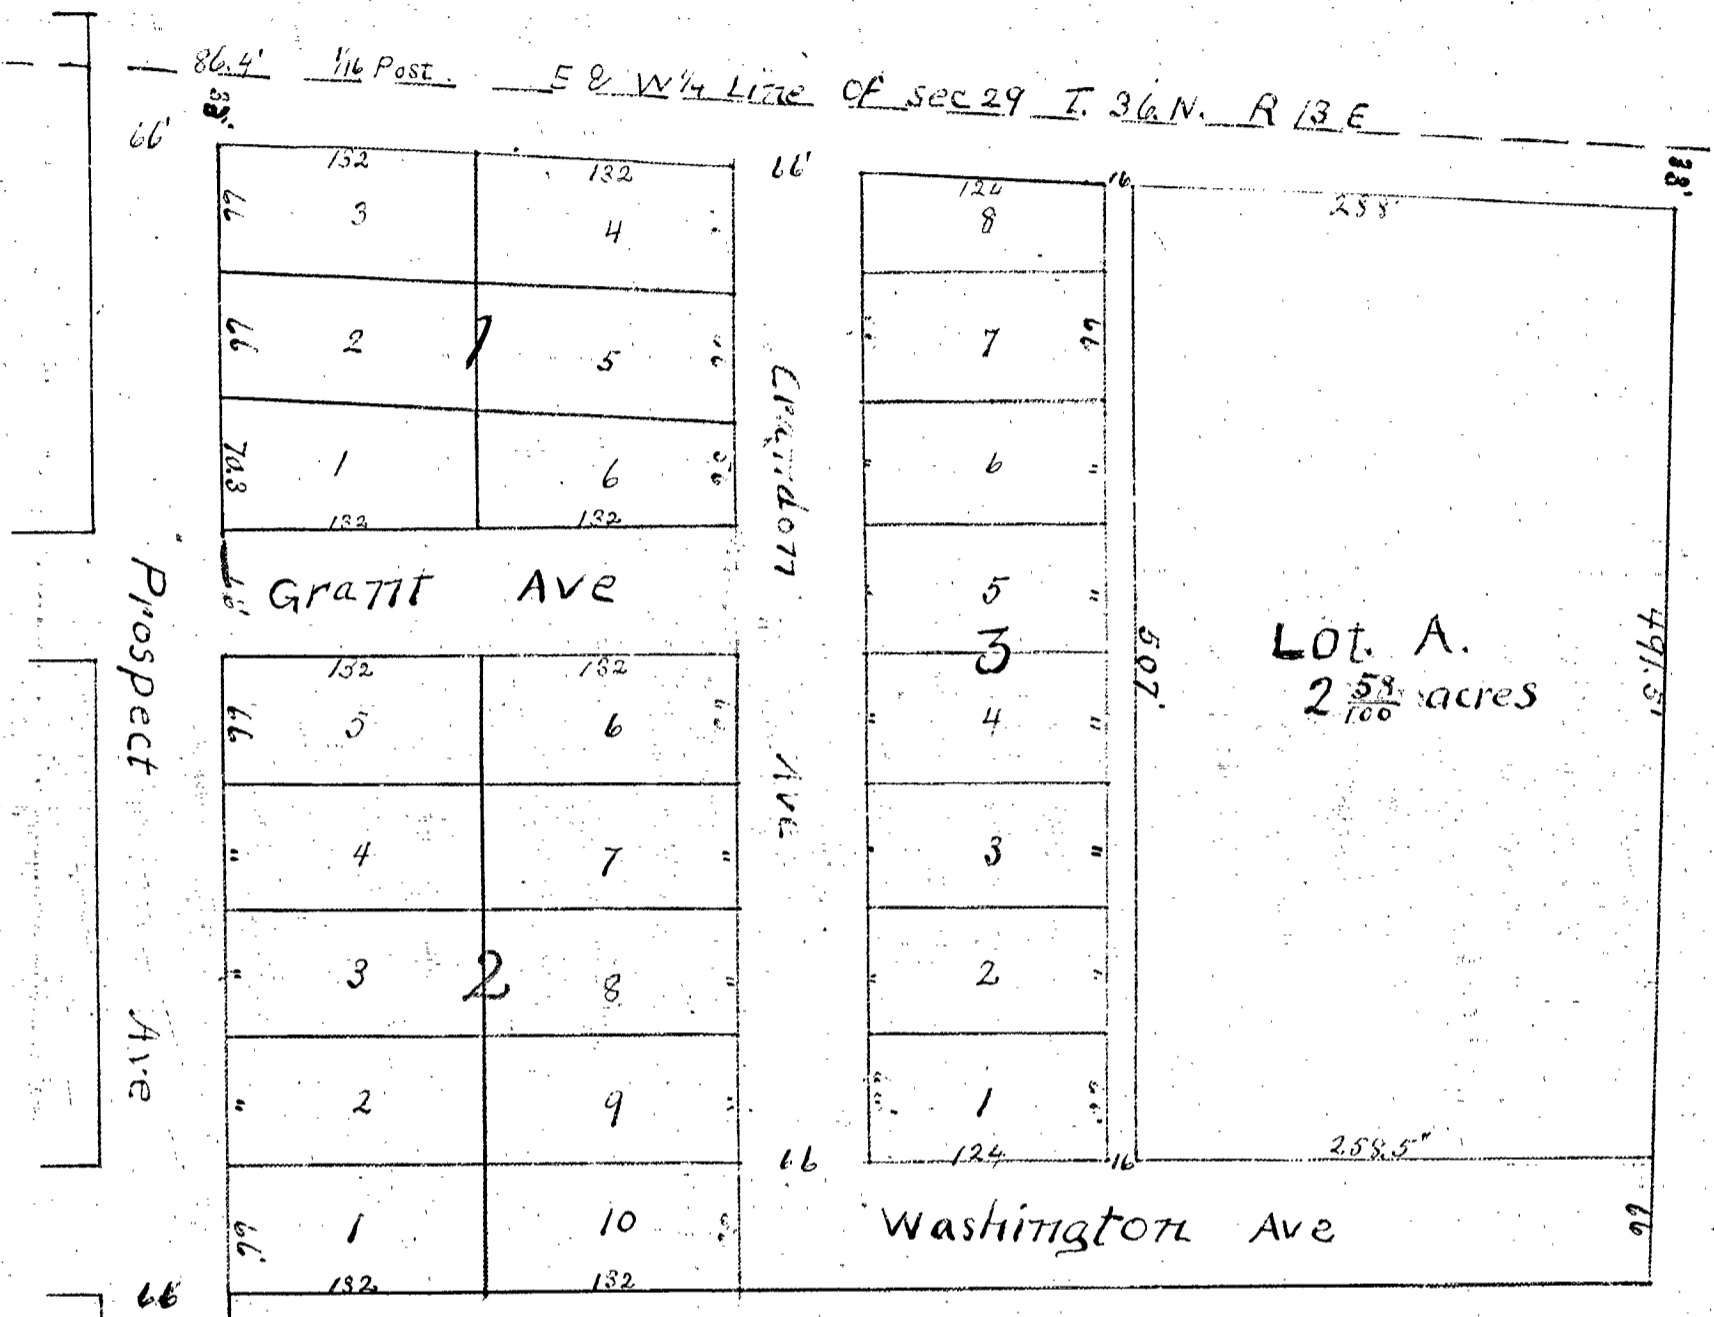 86.4' 1/16 Post. E & W 1/4 Line Of sec 29 T. 36. N. R 13 E
33'
66'
132
132
66'
124
16
288'
33'
66
3
4
8
66
2
1
5
66
7
66
70.3
1
6
66
6
"
132
132
Prospect Ave
66'
Grant Ave
Crandon Ave
5
"
3
507'
Lot. A.
2 58/100 acres
491.5'
132
132
66
5
6
66
"
4
"
"
4
7
"
3
"
"
3
2
8
"
"
2
"
"
2
9
"
66'
1
66'
66
124
16
258.5"
66'
1
10
66
Washington Ave
66
66
132
132